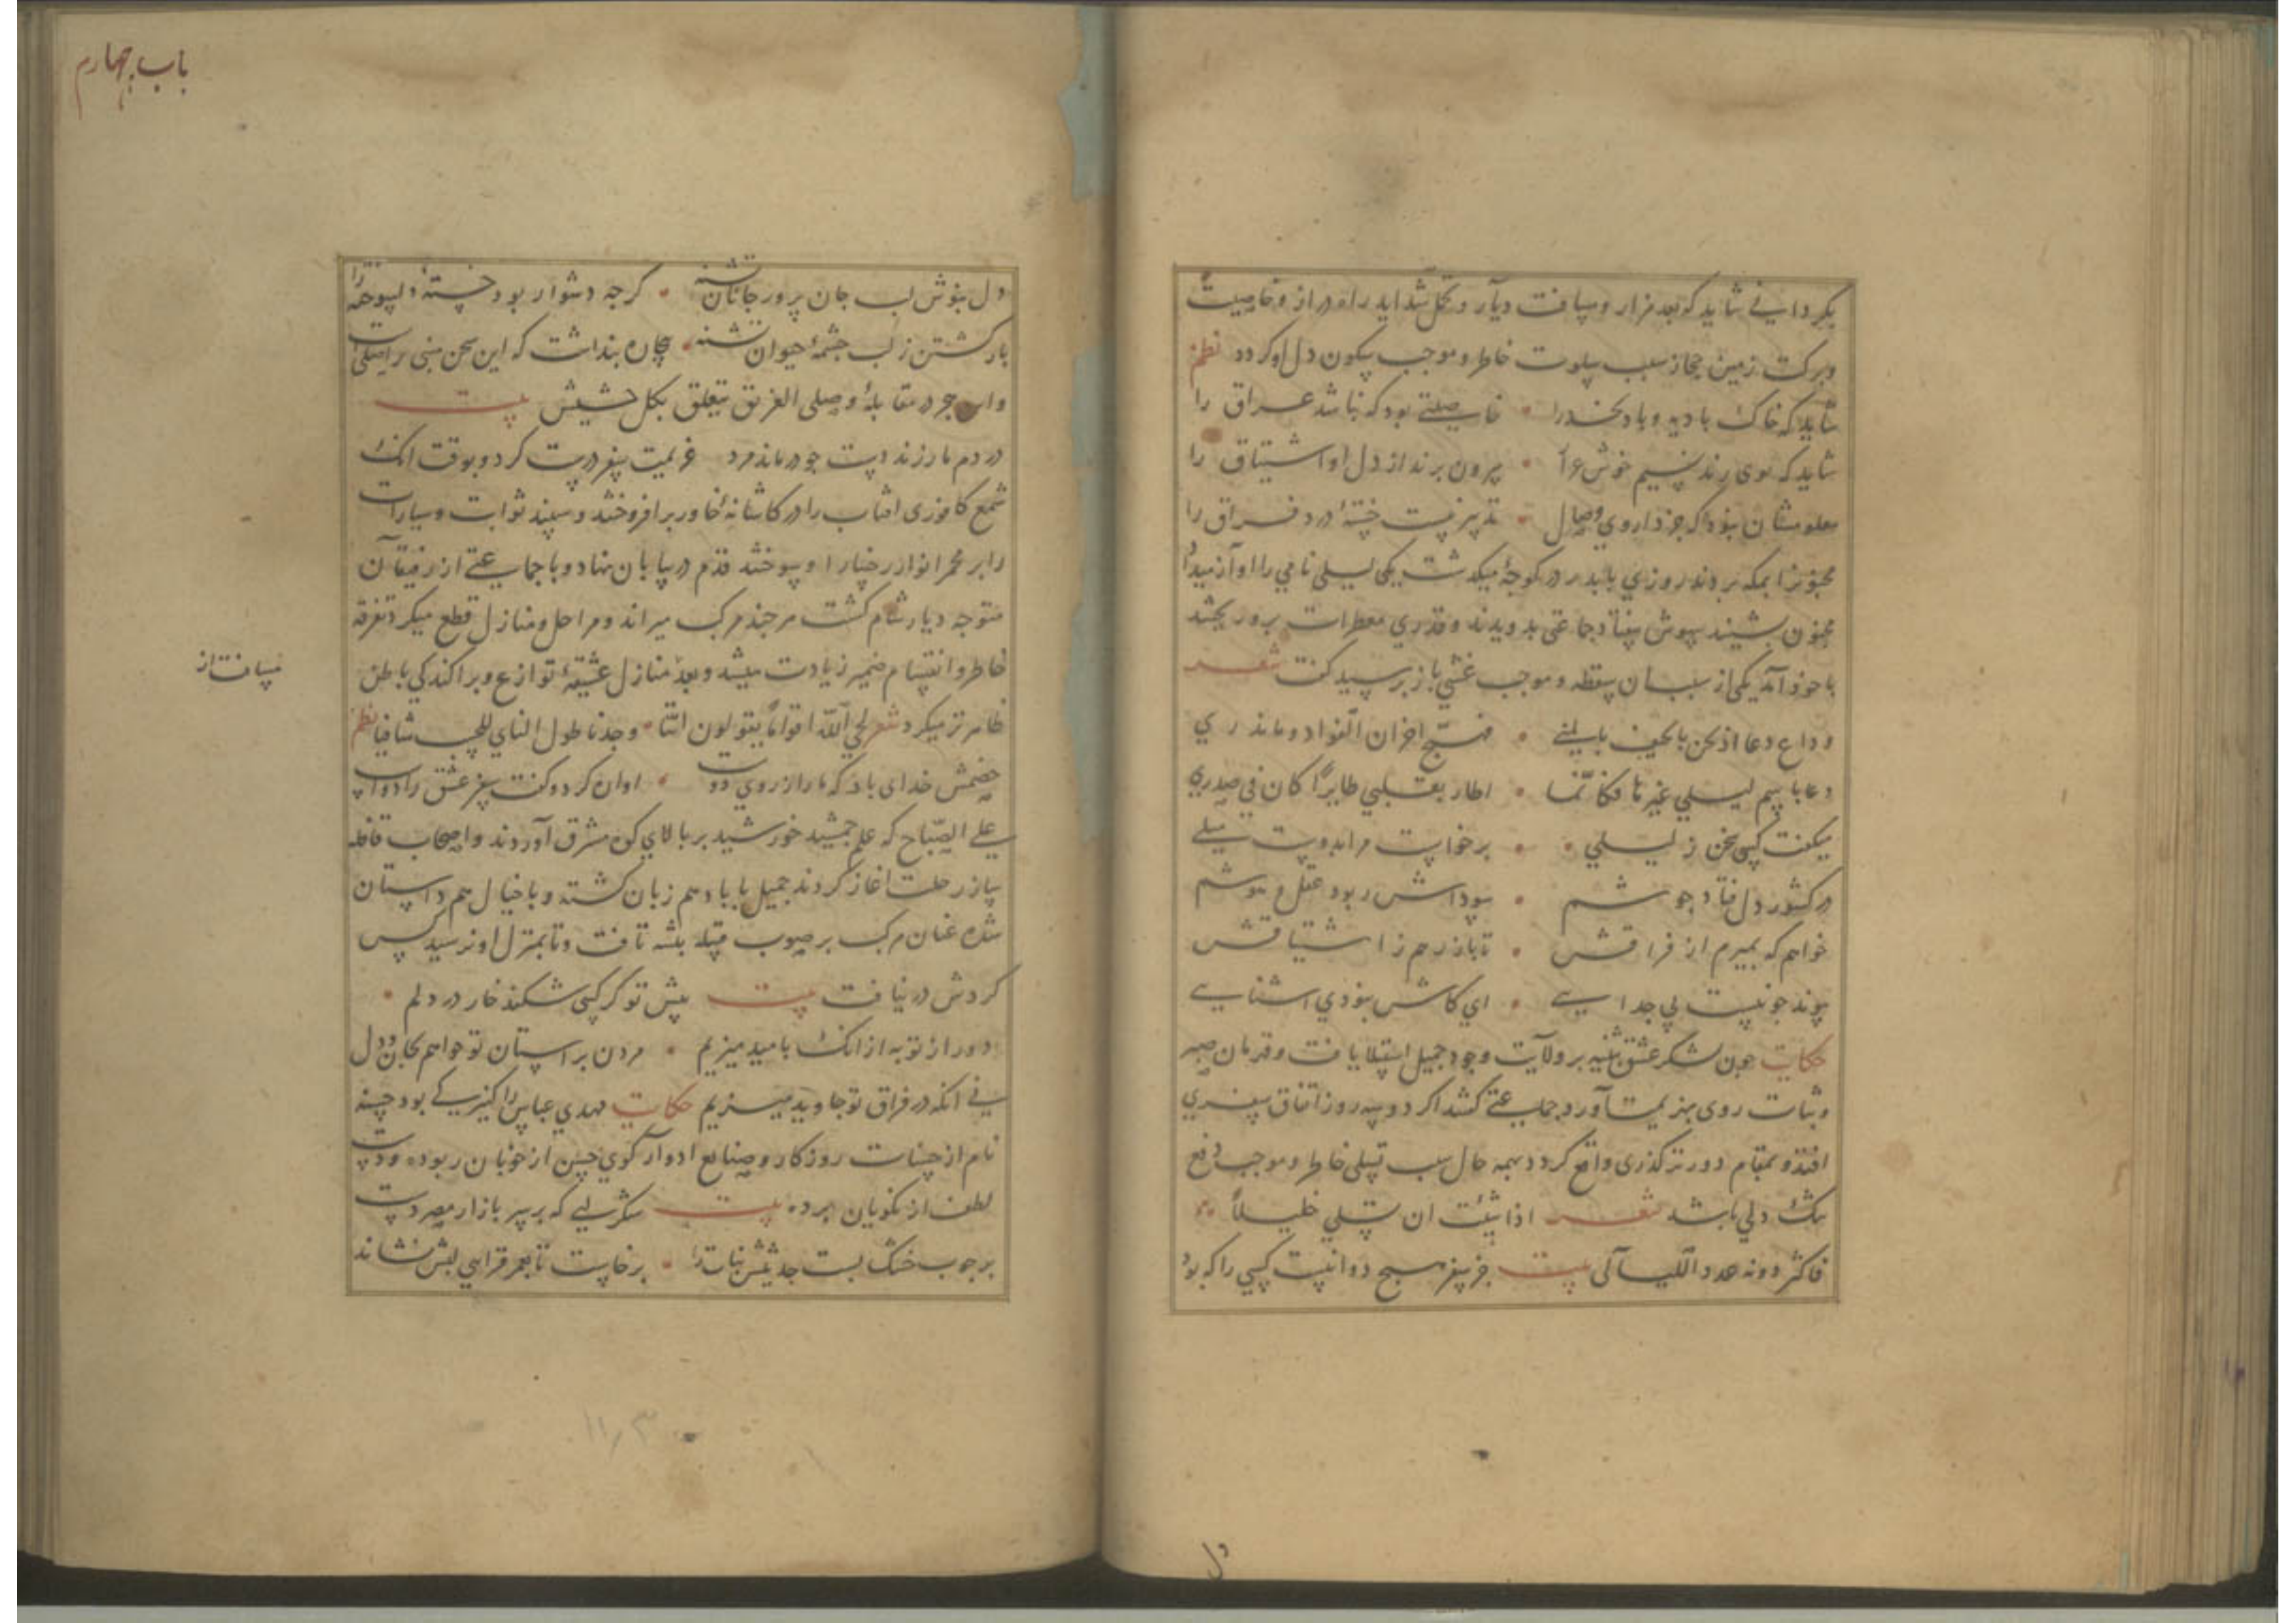 بگردانی شاید که بعد مزار و مسافت دیار و تحمل شداید راه دراز و خاصیت
وبرکت زمین حجاز سبب سلوت خاطر و موجب سکون دل او کردد نظم
شاید که خاک بادیه و باد نجد را • خاصیتی بود که نباشد عراق را
شاید که بوی رند نسیم خوش هوا • بیرون برند از دل او اشتیاق را
معلومشان نبود که جز داروی وصال • تدبیر نیست خستهٔ درد فراق را
مجنونرا بمکه بردند روزی با پدر در کوچهٔ میکذشت یکی لیلی نامی را اواز میداد
مجنون بشنید بیهوش بیفتاد جماعتی بدویدند و قدری معطرات برو ریختند
با خود آمد یکی از سبب ان سقطه و موجب غشی باز پرسید کفت شعر
وداع دعا اذ نحن بالخیف بالمنی • فهیّج احزان الفواد وما یدری
دعا باسم لیلی غیرها فکانّما • اطار بقلبی طایرًا کان فی صدری
میکفت کسی سخن ز لیلی • • برخاست مرا بدوست میلی
در کشور دل فتاد جوشم • سوداش ربود عقل و هوشم
خواهم که بمیرم از فراقش • تا باز رهم ز اشتیاقش
پیوند چو نیست بی جدایی • ای کاش نبودی اشنایی
حکایت چون لشکر عشق بثینه بر ولایت وجود جمیل استیلا یافت و قهرمان صبر
وثبات روی بهزیمت آورد جماعتی کفتند اکر دو سه روز اتفاق سفری
افتد و بمقام دورتر کذری واقع کردد بهمه حال سبب تسلی خاطر و موجب دفع
تنک دلی باشد شعر اذا شئت ان تسلی خلیلاً
فاکثر دونه عدد اللیالی بیت جز سفر هیچ دوا نیست کسی را که بود
دل
باب چهارم
دل بنوش لب جان پرور جانان تشنه • کرچه دشوار بود خستهٔ دلسوخته را
بازکشتن ز لب چشمهٔ حیوان تشنه • بیچاره بنداشت که این سخن مبنی بر اصلی است
در مقابلهٔ وصلی الغریق یتعلق بکل حشیش بیت
در دم مار زند دست چو درماند مرد عزیمت سفر درست کرد و بوقت آنک
شمع کافوری افتاب را در کاشانهٔ خاور برافروختند و سپند ثوابت و سیارات
را بر مجمر انوار رخسار او سوختند قدم در بیابان نهاد و با جماعتی از رفیقان
متوجه دیار شام کشت هرچند مرکب میراند و مراحل و منازل قطع میکرد تفرقه
خاطر و انقسام ضمیر زیادت میشد و بعد منازل عشیقهٔ توازع و پراکندکی باطن
مسافت از
ظاهرتر میکرد شعر لحی الله اقواماً یقولون انّنا • وجدنا طول النای للحب شافیا نظم
خصمش خدای باد که ما را ز روی دوست • اواره کرد و کفت سفر عشق را دواست
علی الصّباح که علم جمشید خورشید بر بالای کوه مشرق آوردند و اصحاب قافله
ساز رحلت اغاز کردند جمیل با باد هم زبان کشته و با خیال هم داستان
شده عنان مرکب بر صوب قبیلهٔ بثینه تافت و تا بمنزل او نرسید کس
کردش در نیافت بیت پیش تو کر کسی شکند خار در دلم •
دور از تو به از انک بامید میزیم • مردن بر آستان تو خواهم بجان و دل
نی آنکه در فراق تو جاوید میزیم حکایت مهدی عباس را کنیزکی بود حسنه
نام از حسنات روزکار و صنایع ادوار کوی حسن از خوبان ربوده ودست
لطف از نکویان برده بیت شکر لبی که بر سر بازار مصر دست
بر چوب خشک بست حدیثش نبات را • برخاست تا بعمر قرامی بقش نشاند